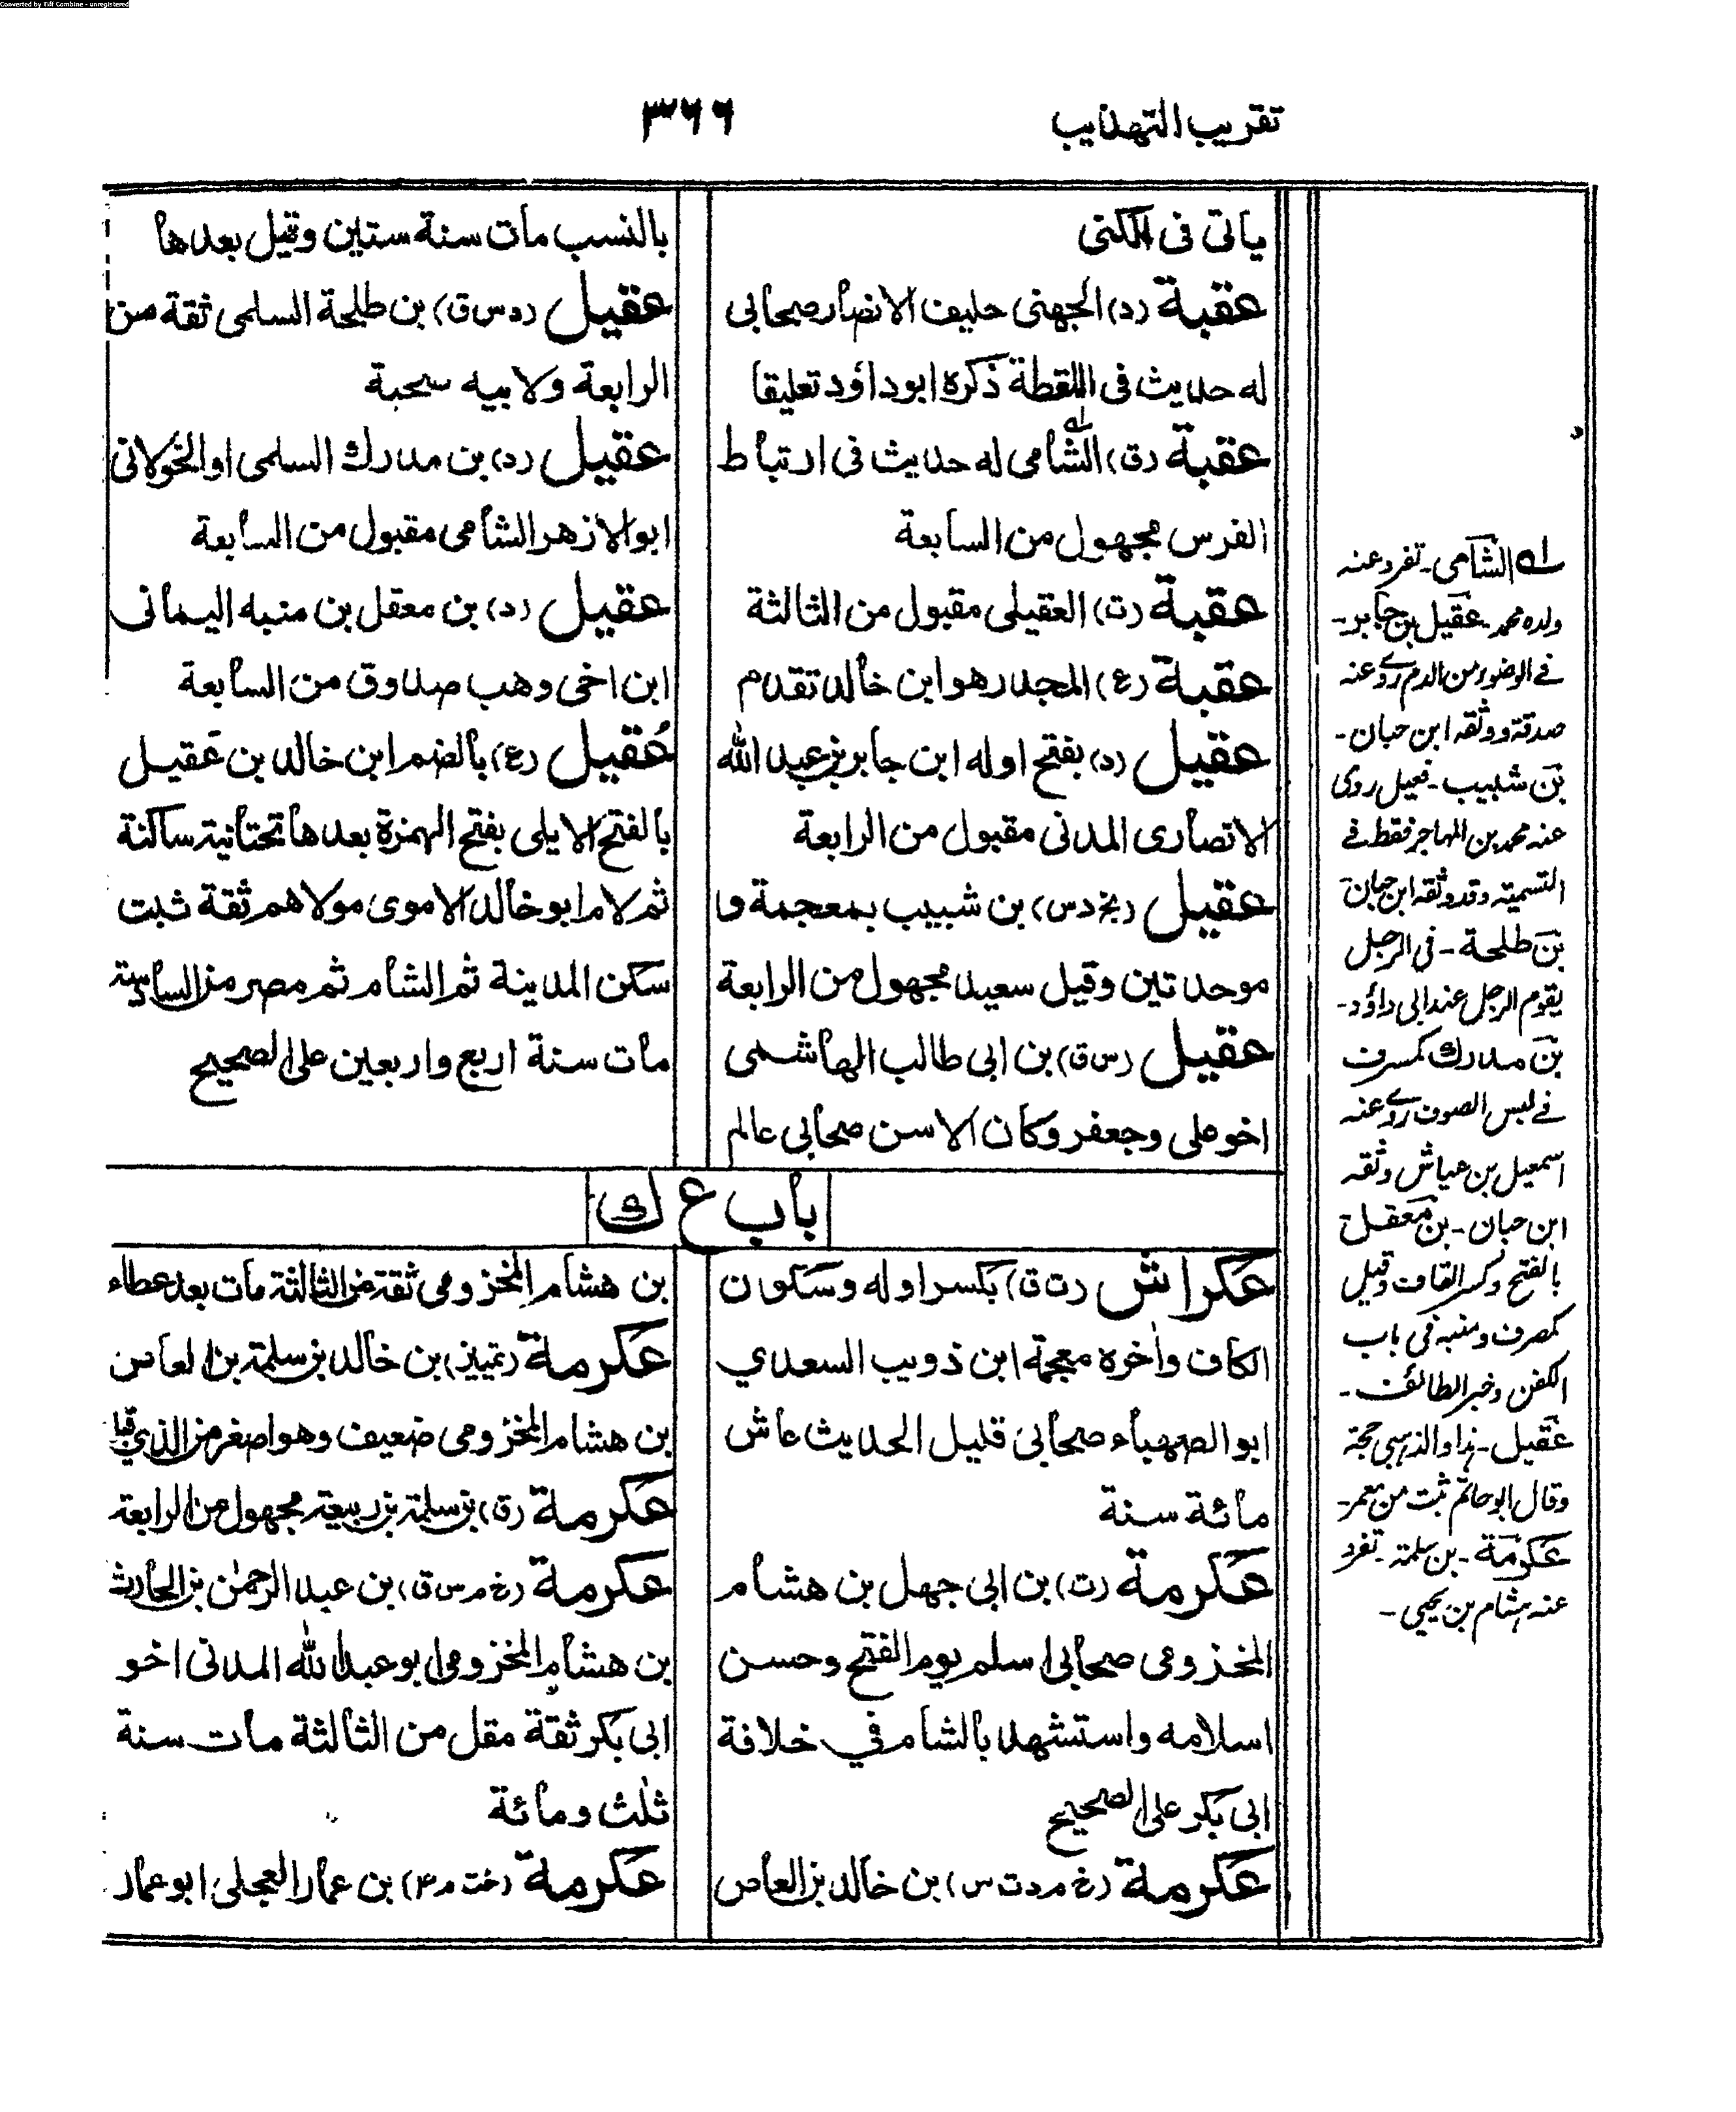 Converted by Tiff Combine - unregistered
تقريب التهذيب
٣٦٦
ياتى فى الكنى
عقبة (د) الجهنى حليف الانصار صحابى
له حديث فى اللقطة ذكره ابوداؤد تعليقا
عقبة (ق) الشامى له حديث فى ارتباط
الفرس مجهول من السابعة
عقبة (ت) العقيلى مقبول من الثالثة
عقبة (ع) المجدر هو ابن خالد تقدم
عقيل (د) بفتح اوله ابن جابر بن عبد الله
الانصارى المدنى مقبول من الرابعة
عقيل (بخ د س) بن شبيب بمعجمة و
موحدتين وقيل سعيد مجهول من الرابعة
عقيل (س ق) بن ابى طالب الهاشمى
اخو على وجعفر وكان الاسن صحابى عالم
بالنسب مات سنة ستين وقيل بعدها
عقيل (د س ق) بن طلحة السلمى ثقة من
الرابعة ولابيه صحبة
عقيل (د) بن مدرك السلمى او الخولانى
ابو الازهر الشامى مقبول من السابعة
عقيل (د) بن معقل بن منبه اليمانى
ابن اخى وهب صدوق من السابعة
عُقيل (ع) بالضم ابن خالد بن عَقيل
بالفتح الايلى بفتح الهمزة بعدها تحتانية ساكنة
ثم لام ابو خالد الاموى مولاهم ثقة ثبت
سكن المدينة ثم الشام ثم مصر من السادسة
مات سنة اربع واربعين على الصحيح
باب ع ك
عكراش (ت ق) بكسر اوله وسكون
الكاف وأخره معجمة ابن ذويب السعدي
ابو الصهباء صحابى قليل الحديث عاش
مائة سنة
عكرمة (ت) بن ابى جهل بن هشام
المخزومى صحابى اسلم يوم الفتح وحسن
اسلامه واستشهد بالشام في خلافة
ابى بكر على الصحيح
عكرمة (خ م د ت س) بن خالد بن العاص
بن هشام المخزومى ثقة من الثالثة مات بعد عطاء
عكرمة (تمييز) بن خالد بن سلمة بن العاص
بن هشام المخزومى ضعيف وهو اصغر من الذي قبله
عكرمة (ق) بن سلمة بن ربيعة مجهول من الرابعة
عكرمة (خ م س ق) بن عبد الرحمٰن بن الحارث
بن هشام المخزومى ابو عبد الله المدنى اخو
ابى بكر ثقة مقل من الثالثة مات سنة
ثلٰث ومائة
عكرمة (خت م ٤) بن عمار العجلى ابو عمار
له الشامى - تفرد عنه
ولده محمد - عقيل بن جابر -
فے الوضوء من الدم روے عنه
صدقة ووثقه ابن حبان -
بن شبيب - قيل روى
عنه محمد بن المهاجر فقط فے
التسمية وقد وثقه ابن حبان
بن طلحة - فى الرجل
يقوم الرجل عند ابى داؤد -
بن مدرك كمسرف
فے لبس الصوف روے عنه
اسمعيل بن عياش وثقه
ابن حبان - بن معقل
بالفتح وكسر القاف وقيل
كمصرف ومنبه فى باب
الكفن وخبر الطائف -
عقيل - هذا والذهبى حجة
وقال ابو حاتم ثبت من معمر -
عكرمة - بن سلمة - تفرد
عنه هشام بن يحيى -